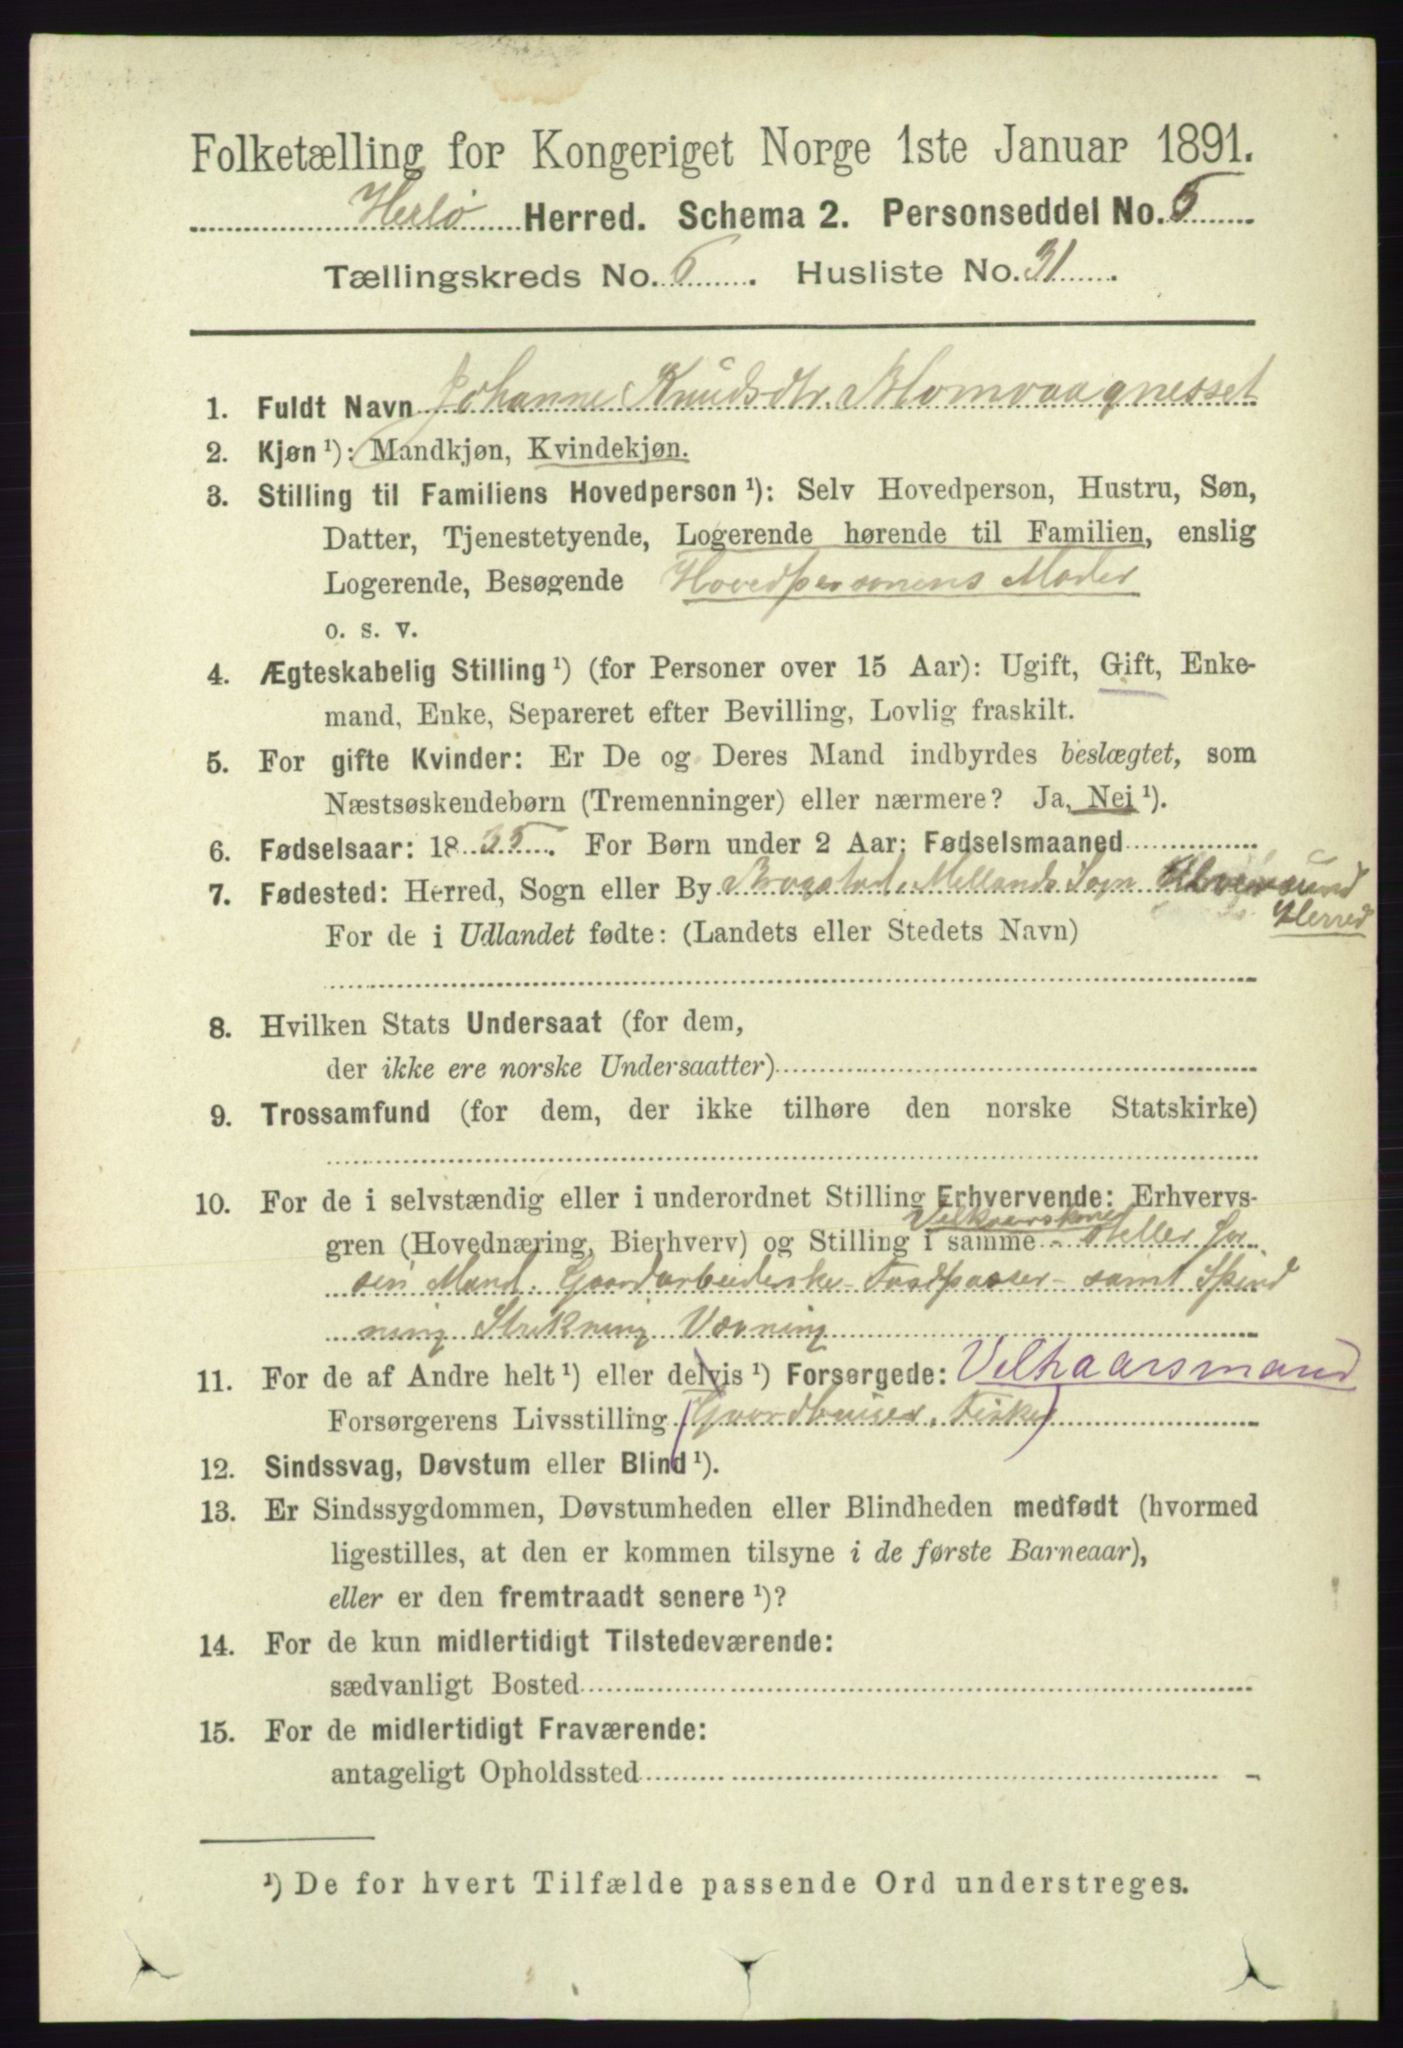 Folketælling for Kongeriget Norge 1ste Januar 1891.
Herlø Herred. Schema 2. Personseddel No. 5
Tællingskreds No. 6. Husliste No. 31.
1. Fuldt Navn Johanne Knudsdtr. Blomvaagnesset
2. Kjøn ¹): Mandkjøn, Kvindekjøn.
3. Stilling til Familiens Hovedperson ¹): Selv Hovedperson, Hustru, Søn,
Datter, Tjenestetyende, Logerende hørende til Familien, enslig
Logerende, Besøgende Hovedpersonens Moder
o. s. v.
4. Ægteskabelig Stilling ¹) (for Personer over 15 Aar): Ugift, Gift, Enke-
mand, Enke, Separeret efter Bevilling, Lovlig fraskilt.
5. For gifte Kvinder: Er De og Deres Mand indbyrdes beslægtet, som
Næstsøskendebørn (Tremenninger) eller nærmere? Ja, Nei ¹).
6. Fødselsaar: 1835. For Børn under 2 Aar: Fødselsmaaned
7. Fødested: Herred, Sogn eller By Mellands Sogn
Herred
For de i Udlandet fødte: (Landets eller Stedets Navn)
8. Hvilken Stats Undersaat (for dem,
der ikke ere norske Undersaatter)
9. Trossamfund (for dem, der ikke tilhøre den norske Statskirke)
10. For de i selvstændig eller i underordnet Stilling Erhvervende: Erhvervs-
Velkaarskone
gren (Hovednæring, Bierhverv) og Stilling i samme - steller for
sin Mand. Gaardarbeiderske - samt Spind
ning Strikning Vævning
11. For de af Andre helt ¹) eller delvis ¹) Forsørgede: Velkaarsmand
Forsørgerens Livsstilling (Gaardbruger, Fisker)
12. Sindssvag, Døvstum eller Blind ¹).
13. Er Sindssygdommen, Døvstumheden eller Blindheden medfødt (hvormed
ligestilles, at den er kommen tilsyne i de første Barneaar),
eller er den fremtraadt senere ¹)?
14. For de kun midlertidigt Tilstedeværende:
sædvanligt Bosted
15. For de midlertidigt Fraværende:
antageligt Opholdssted
¹) De for hvert Tilfælde passende Ord understreges.